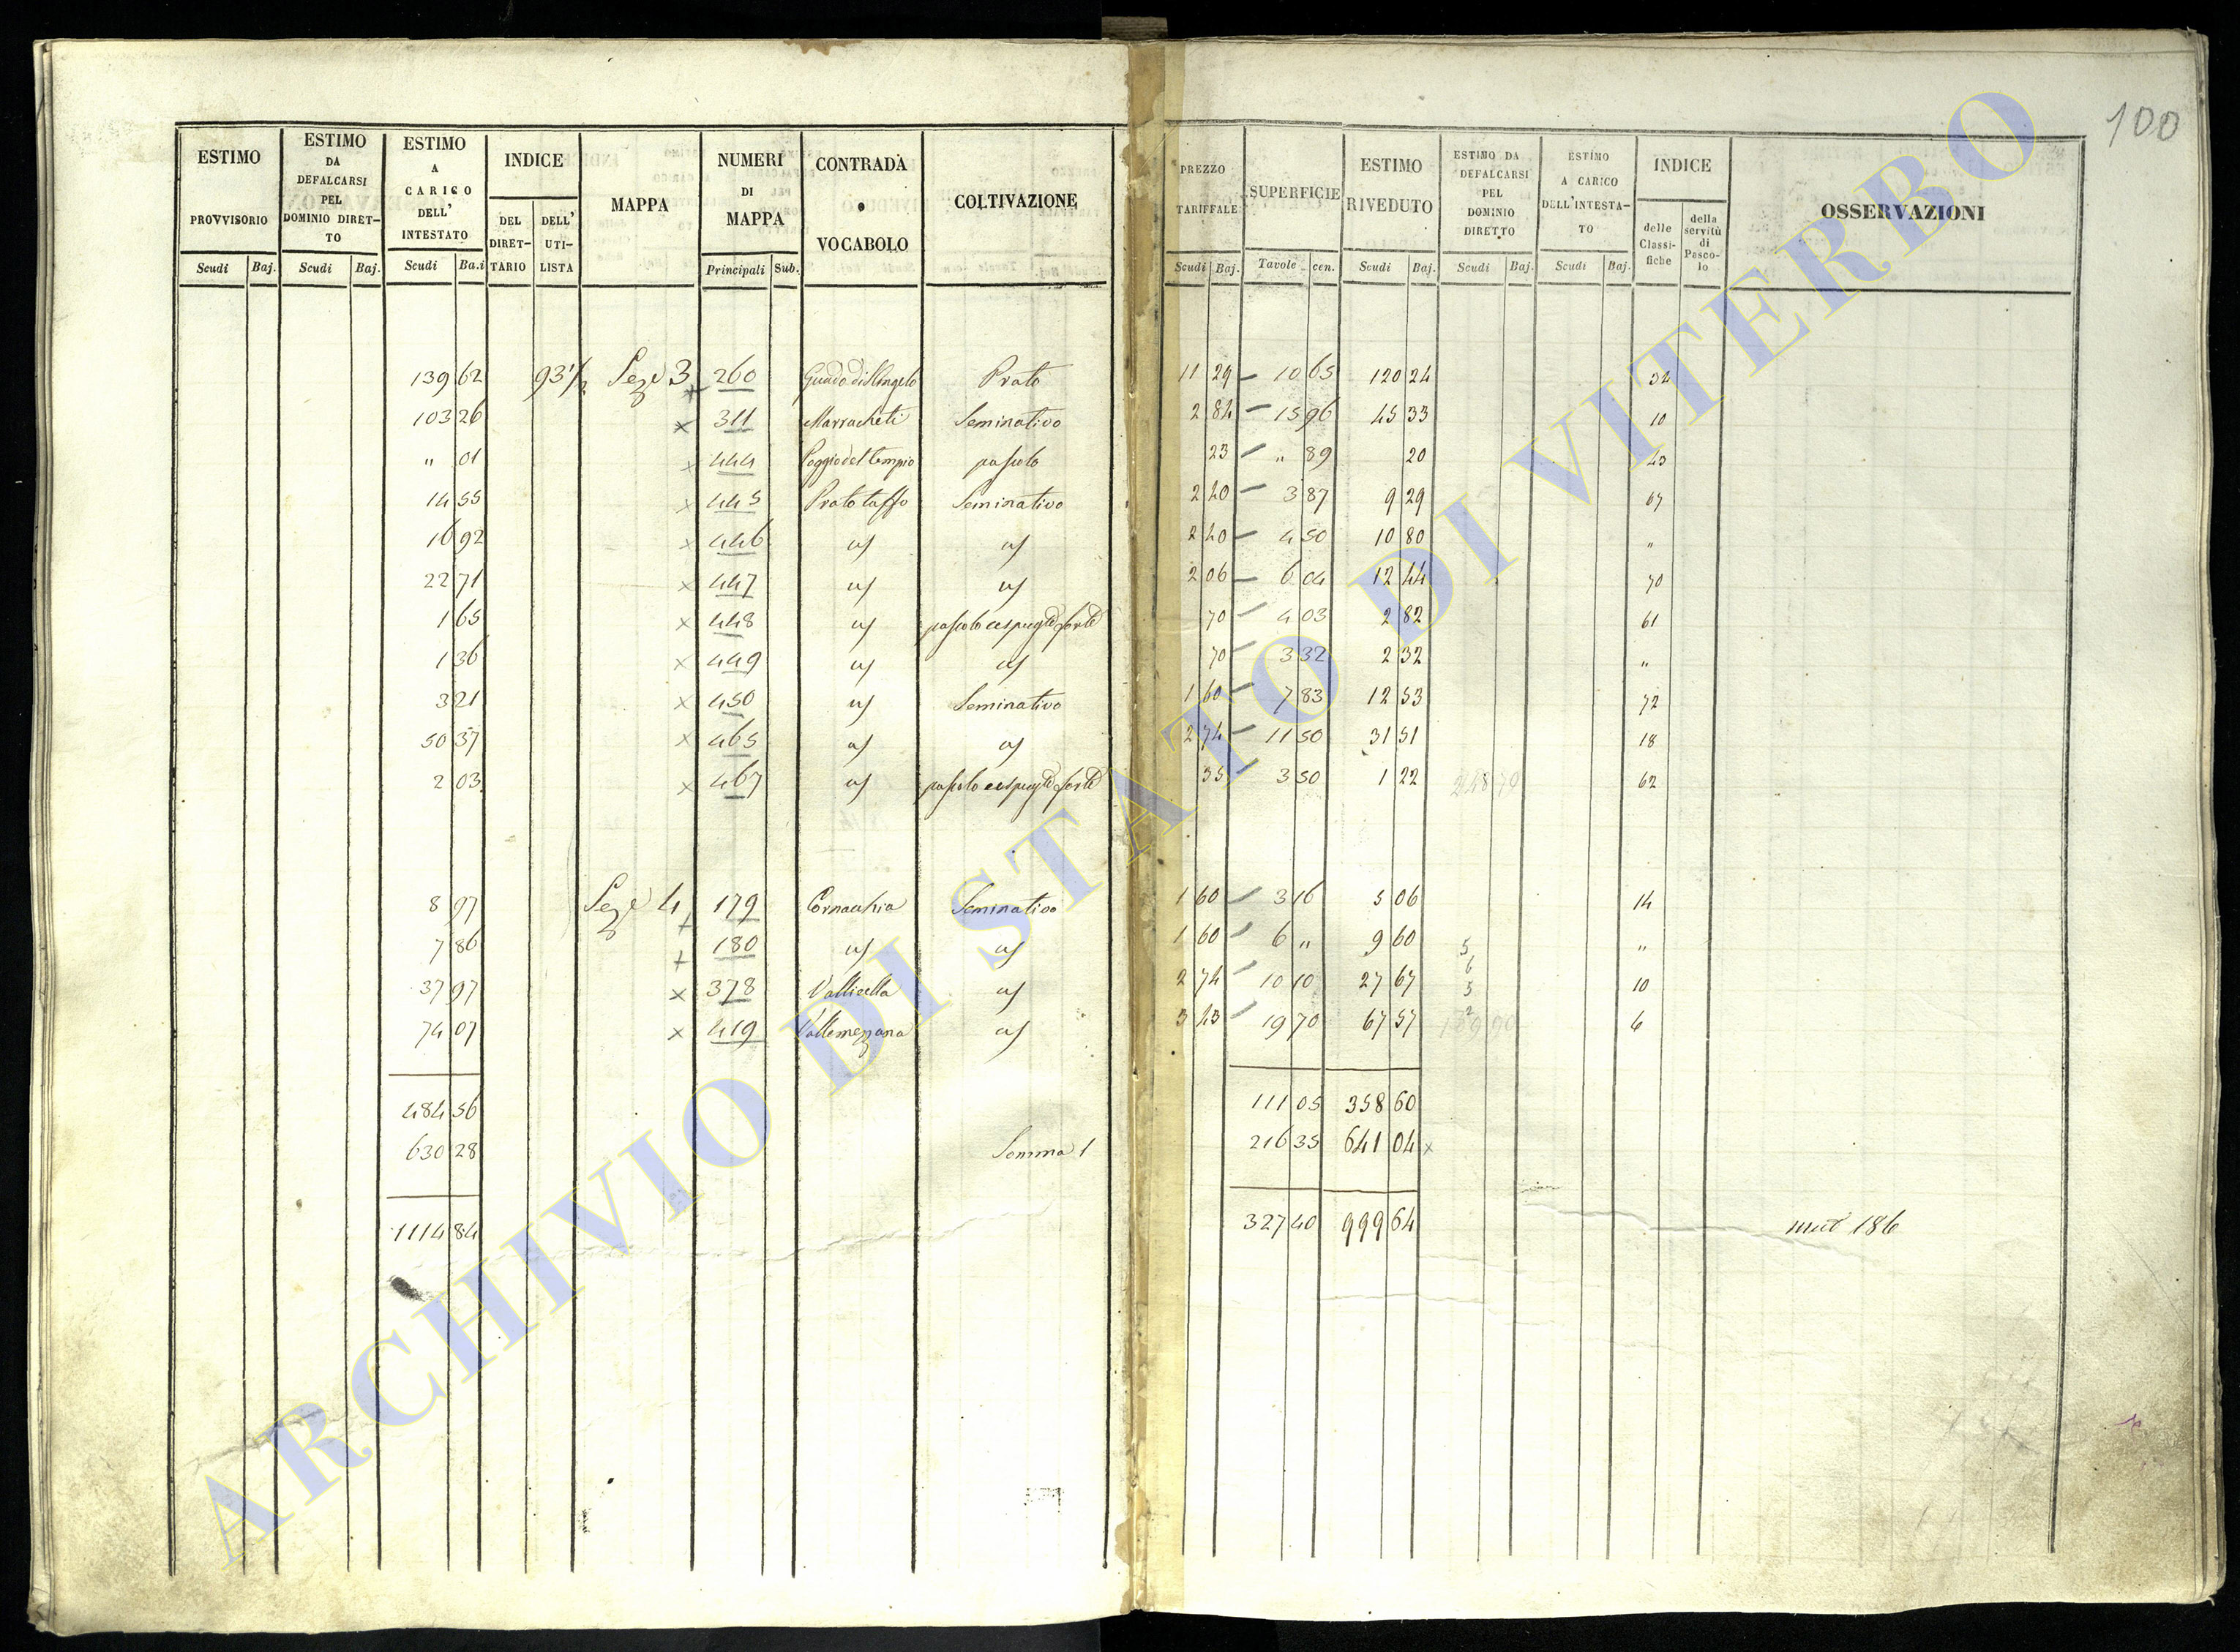 100
ESTIMO PROVVISORIO Scudi Baj.
ESTIMO DA DEFALCARSI PEL DOMINIO DIRET-TO Scudi Baj.
ESTIMO A CARICO DELL' INTESTATO Scudi Ba.i
INDICE DEL DIRET-TARIO DELL' UTI-LISTA
MAPPA
NUMERI DI MAPPA Principali Sub.
CONTRADA o VOCABOLO
COLTIVAZIONE
PREZZO TARIFFALE Scudi Baj.
SUPERFICIE Tavole cen.
ESTIMO RIVEDUTO Scudi Baj.
ESTIMO DA DEFALCARSI PEL DOMINIO DIRETTO Scudi Baj.
ESTIMO A CARICO DELL'INTESTA-TO Scudi Baj.
INDICE delle Classi-fiche della servitù di Pasco-lo
OSSERVAZIONI
139 62 93 1/2 Seze 3 x 260 Guado di S Angelo Prato 11 29 10 65 120 24 34
103 26 x 311 Marracheti Seminativo 2 84 15 96 45 33 10
" 01 x 444 Poggio del tempio pascolo 23 " 89 20 43
14 55 x 445 Prato tasso Seminativo 2 40 3 87 9 29 67
16 92 x 446 a/ a/ 2 40 4 50 10 80 "
22 71 x 447 a/ a/ 2 06 6 04 12 44 70
1 65 x 448 a/ pascolo cespugto forte 70 4 03 2 82 61
1 36 x 449 a/ a/ 70 3 32 2 32 "
3 21 x 450 a/ Seminativo 1 60 7 83 12 53 72
50 37 x 465 a/ a/ 2 74 11 50 31 51 18
2 03 x 467 a/ pascolo cespugto forte 35 3 50 1 22 248 79 62
8 97 Seze 4 x 179 Cornacchia Seminativo 1 60 3 16 5 06 14
7 86 x 180 a/ a/ 1 60 6 " 9 60 5 "
37 97 x 378 Vallicella a/ 2 74 10 10 27 67 6 5 10
74 07 x 419 Vallemezzana a/ 3 43 19 70 67 57 2 109 90 6
484 56 111 05 358 60
630 28 Somma 1 216 35 641 04 x
1114 84 327 40 999 64 mut 186
ARCHIVIO DI STATO DI VITERBO